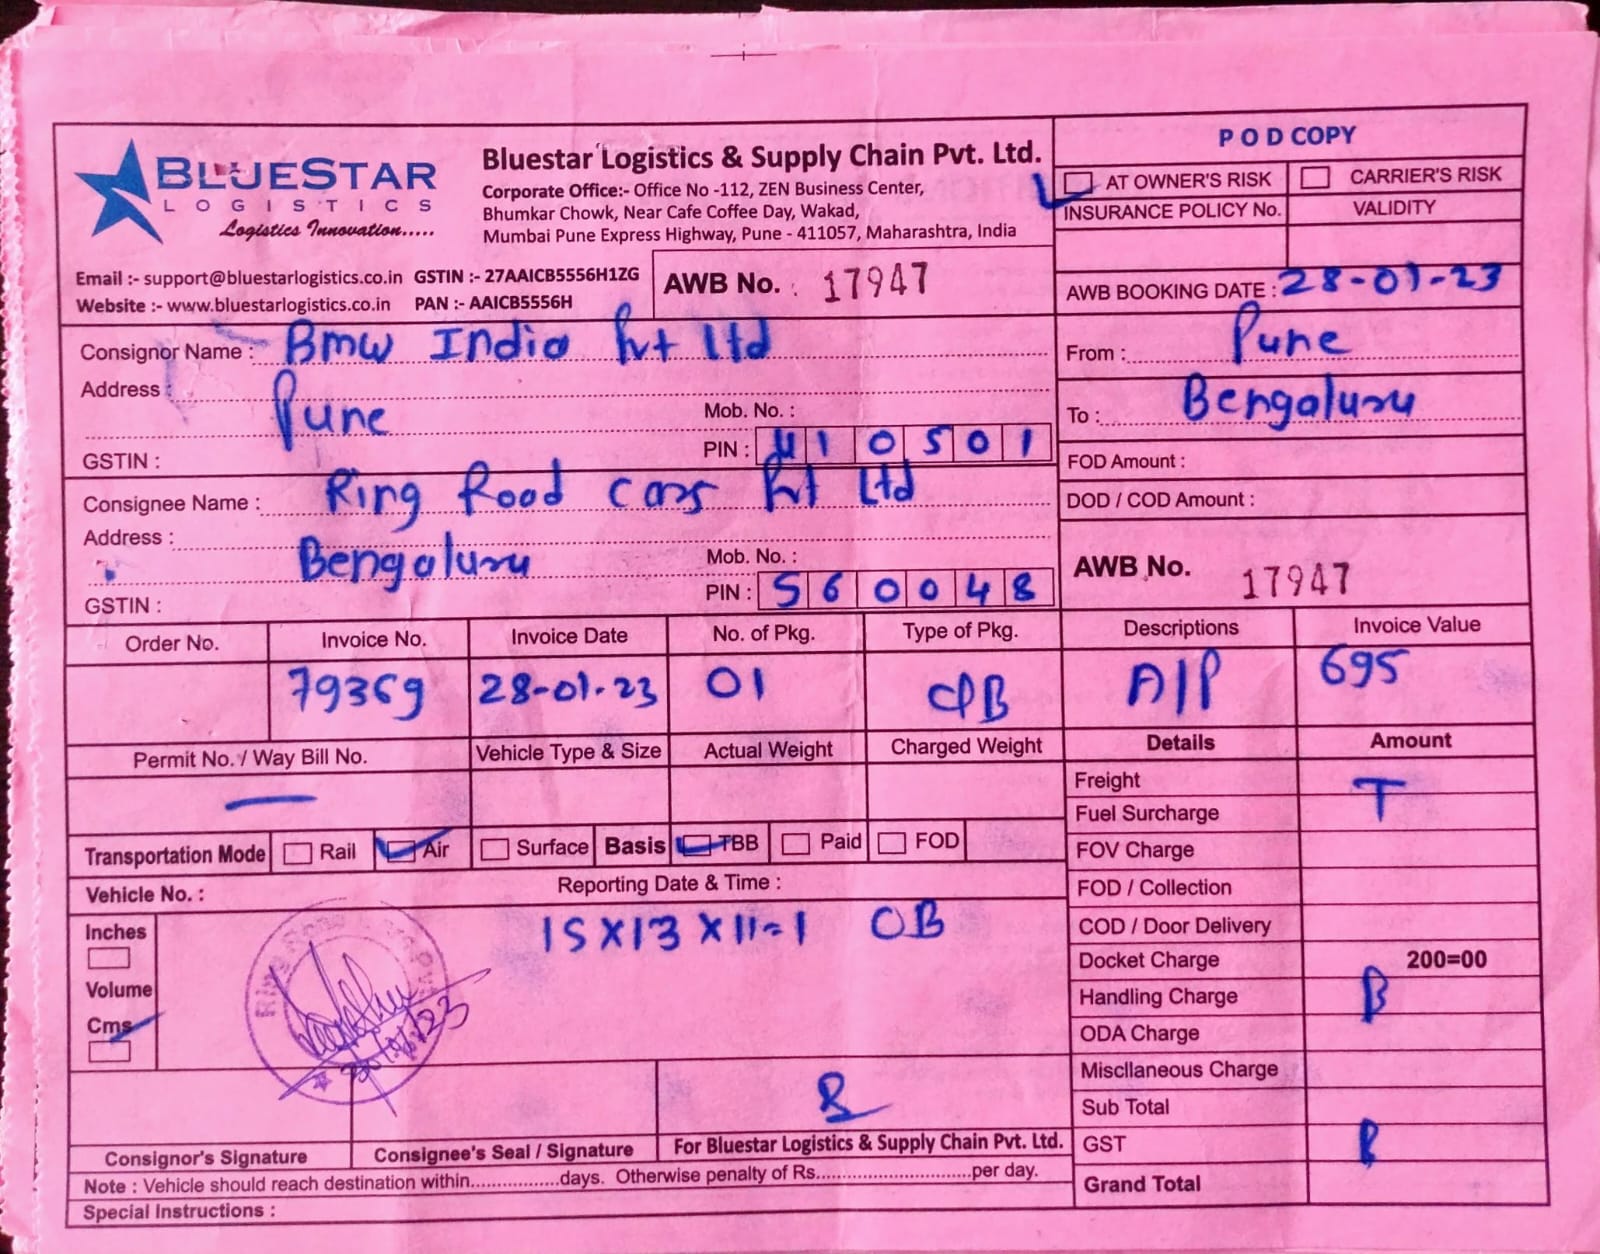 BLUESTAR
LOGISTICS
Logistics Innovation.....
Bluestar Logistics & Supply Chain Pvt. Ltd.
Corporate Office:- Office No -112, ZEN Business Center,
Bhumkar Chowk, Near Cafe Coffee Day, Wakad,
Mumbai Pune Express Highway, Pune - 411057, Maharashtra, India
POD COPY
AT OWNER'S RISK CARRIER'S RISK
INSURANCE POLICY No. VALIDITY
Email :- support@bluestarlogistics.co.in GSTIN :- 27AAICB5556H1ZG
Website :- www.bluestarlogistics.co.in PAN :- AAICB5556H
AWB No. : 17947
AWB BOOKING DATE : 28-01-23
Consignor Name : Bmw India Pvt Ltd
From : Pune
Address :
Pune
Mob. No. :
To : Bengaluru
GSTIN : PIN : 410501
FOD Amount :
Consignee Name : Ring Road Cars Pvt Ltd
DOD / COD Amount :
Address :
Bengaluru
Mob. No. :
GSTIN : PIN : 560048
AWB No. 17947
Order No. Invoice No. Invoice Date No. of Pkg. Type of Pkg. Descriptions Invoice Value
79369 28-01-23 01 CB A/P 695
Permit No. / Way Bill No. Vehicle Type & Size Actual Weight Charged Weight Details Amount
Freight
Fuel Surcharge
T
Transportation Mode Rail Air Surface Basis TBB Paid FOD
FOV Charge
Vehicle No. : Reporting Date & Time :
FOD / Collection
Inches
15x13x11-1 CB
COD / Door Delivery
Docket Charge 200=00
Volume
Handling Charge
B
Cms
ODA Charge
Miscllaneous Charge
Sub Total
GST
Grand Total
Consignor's Signature Consignee's Seal / Signature For Bluestar Logistics & Supply Chain Pvt. Ltd.
Note : Vehicle should reach destination within.................days. Otherwise penalty of Rs..............................per day.
Special Instructions :